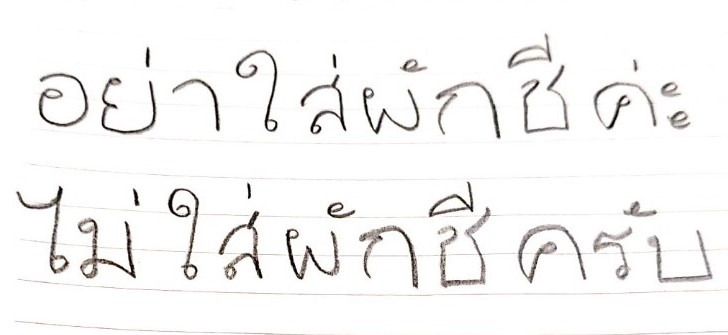 อย่าใส่ผักชีค่ะ
ไม่ใส่ผักชีครับ